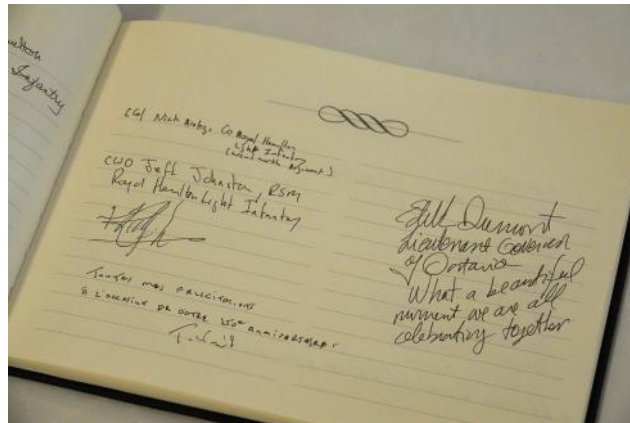 Infantry
LCol Nick Arrigo, CO Royal Hamilton
Light Infantry
(Wentworth Regiment)
CWO Jeff Johnston, RSM
Royal Hamilton Light Infantry
Toutes mes félicitations
à l'occasion de votre 150e anniversaire!
Edith Dumont
Lieutenant Governor
of Ontario
What a beautiful
moment we are all
celebrating together